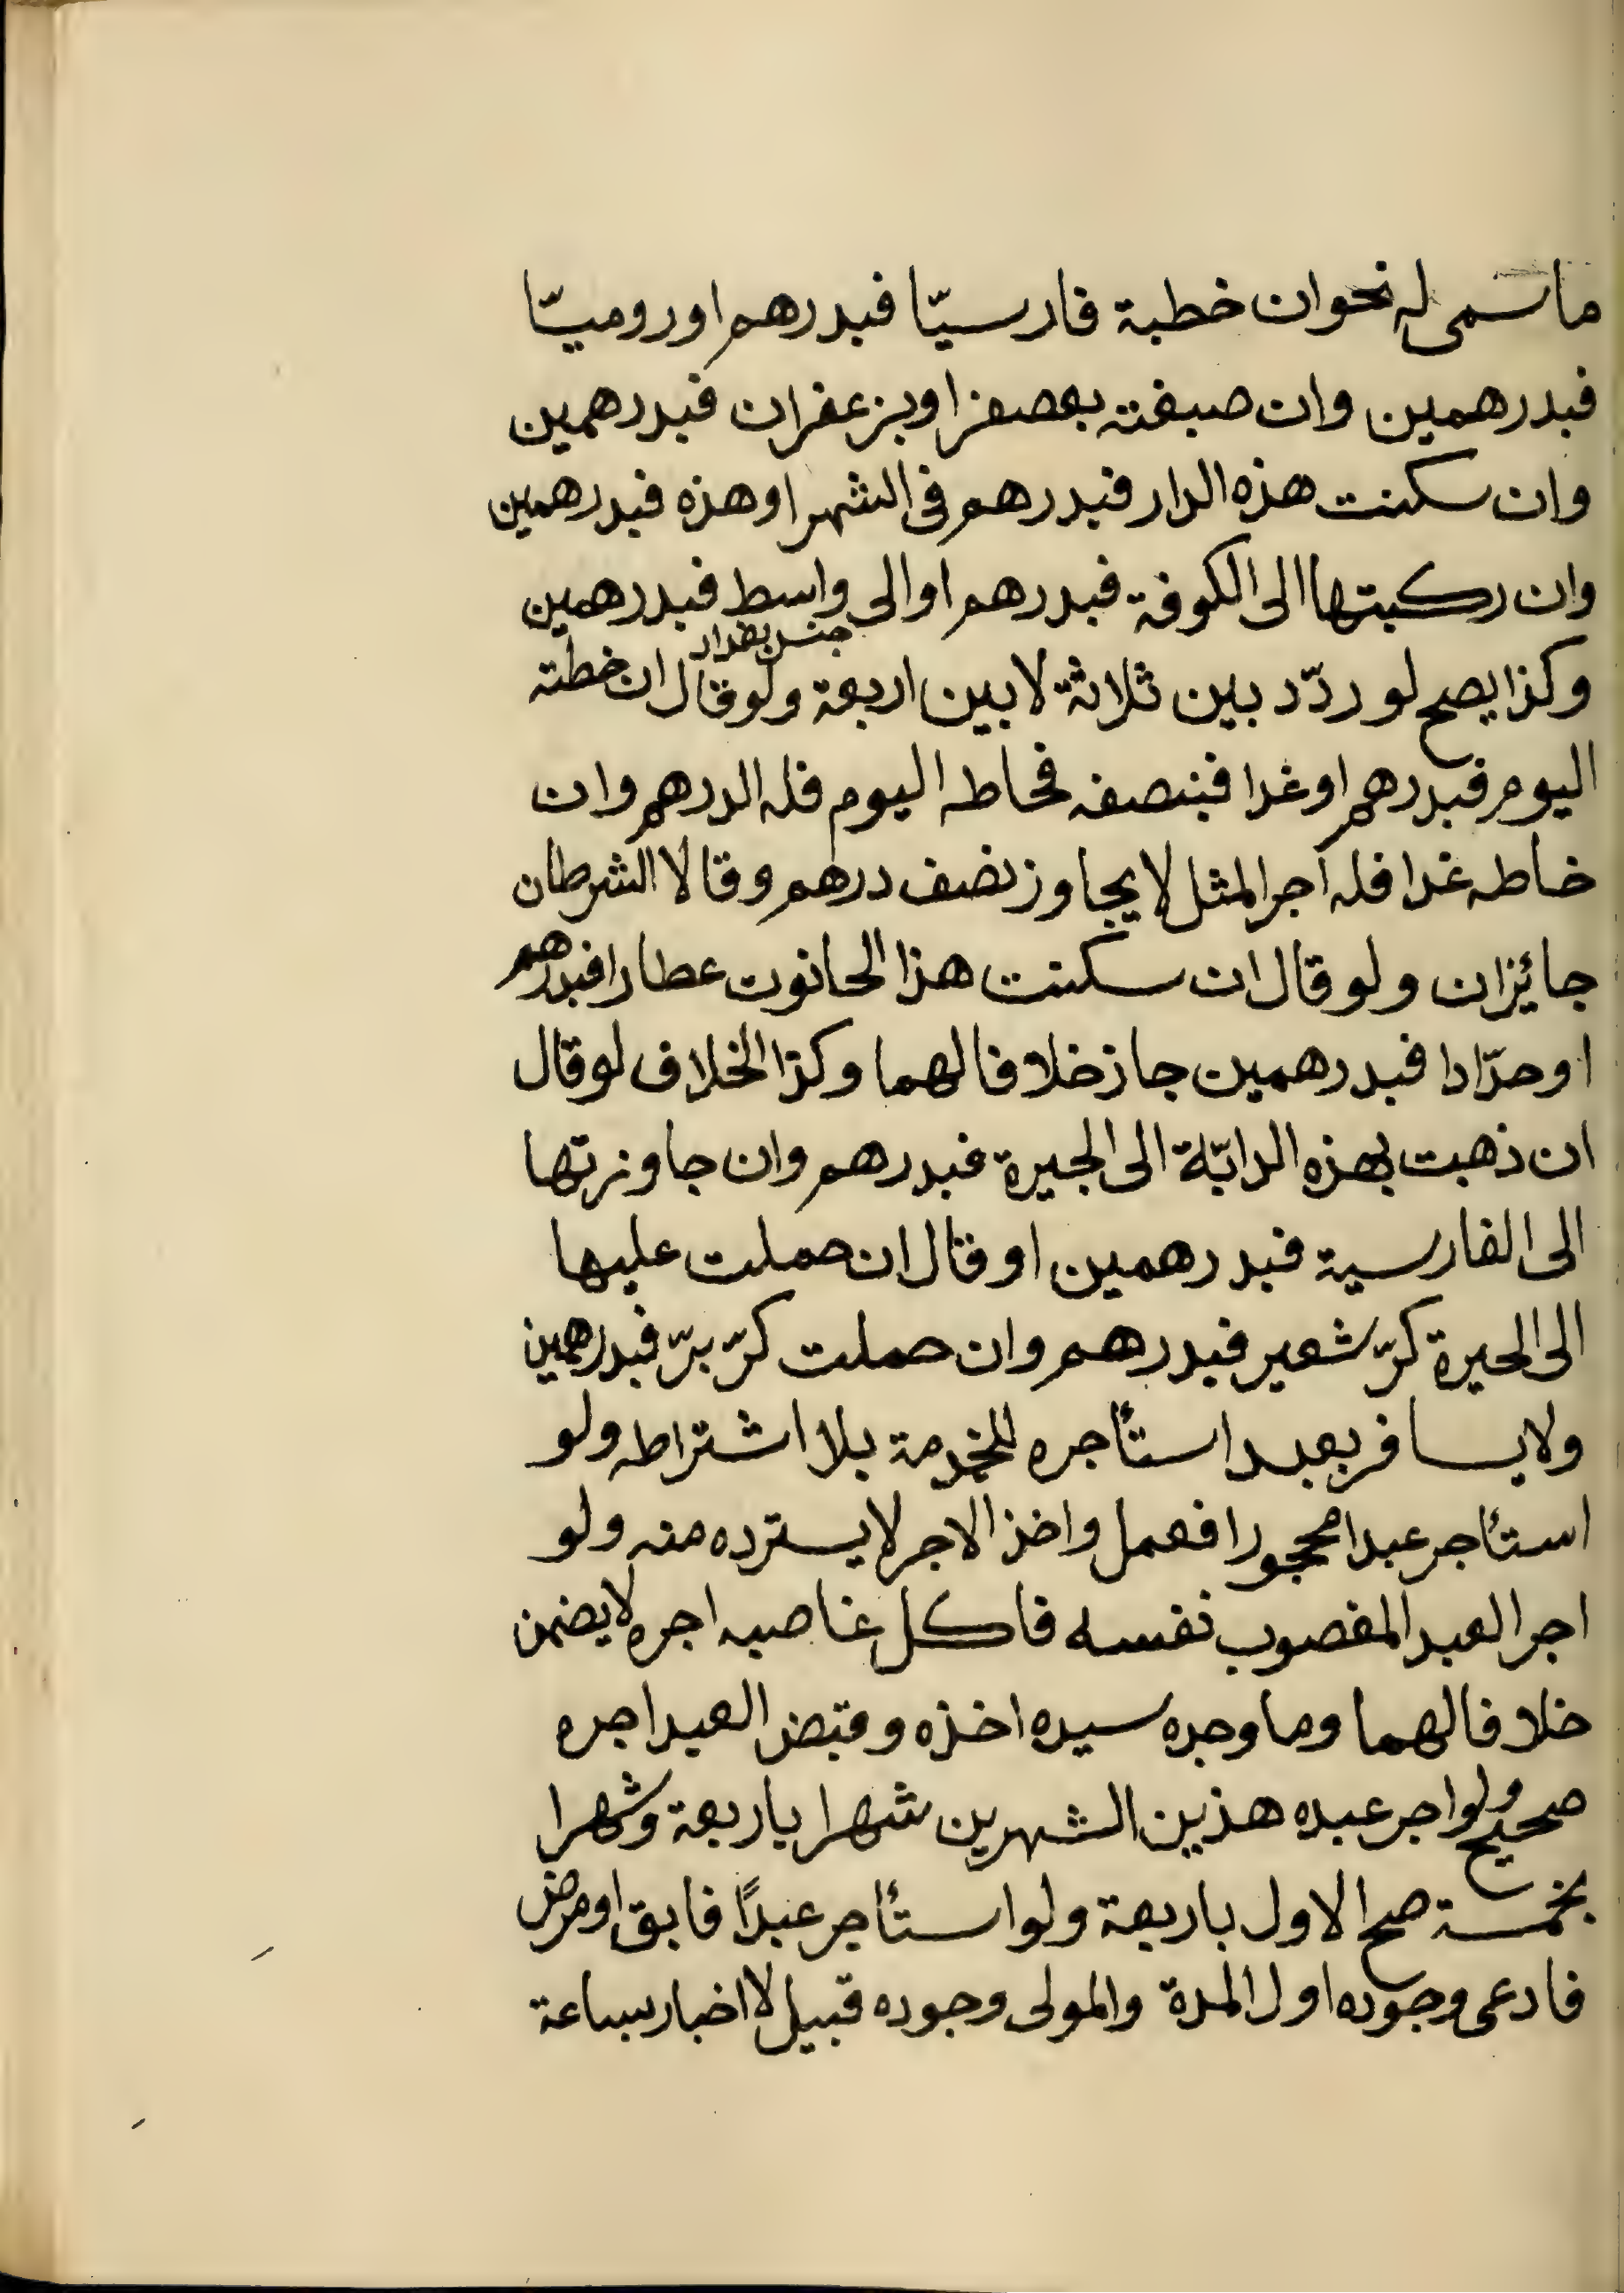 ما سمى له نحو ان خطبة فارسيّا فبدرهم او روميّا
فبدرهمين وان صبغته بعصفر او بزعفران فبدرهمين
وان سكنت هذه الدار فبدرهم فى الشهر او هذه فبدرهمين
وان ركبتها الى الكوفة فبدرهم او الى واسط فبدرهمين
وكذا يصح لو ردّد بين ثلاثة لا بين اربعة ولو قال ان خطته
اليوم فبدرهم او غدا فبنصفه فخاطه اليوم فله الدرهم وان
خاطه غدا فله اجر المثل لا يجاوز نصف درهم وقالا الشرطان
جائزان ولو قال ان سكنت هذا الحانوت عطارا فبدرهم
او حدّادا فبدرهمين جاز خلافا لهما وكذا الخلاف لو قال
ان ذهبت بهذه الدابّة الى الجيرة فبدرهم وان جاوزتها
الى الفارسية فبدرهمين او قال ان حملت عليها
الى الحيرة كرّ شعير فبدرهم وان حملت كرّ برّ فبدرهمين
ولا يسافر بعبد استأجره للخدمة بلا اشتراطه ولو
استأجر عبدا محجورا فعمل واخذ الاجر لا يسترده منه ولو
اجر العبد المغصوب نفسه فاكل غاصبه اجره لا يضمن
خلافا لهما وما وجده سيده اخذه وقبض العبد اجره
صحيح ولو اجر عبده هذين الشهرين شهرا باربعة وشهرا
بخمسة صح الاول باربعة ولو استأجر عبدًا فابق او مرض
فادعى وجوده اول المدة والمولى وجوده قبيل لا اخبار بساعة